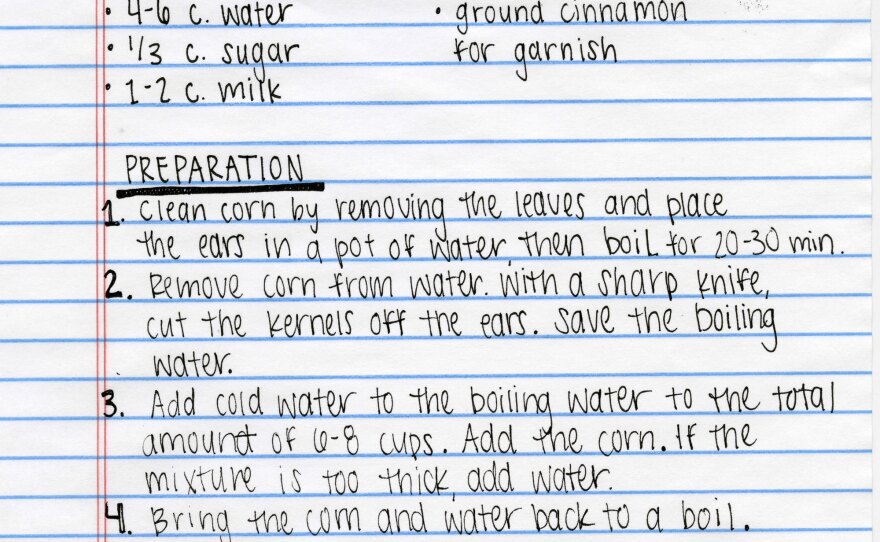 • 4-6 c. water
• ground cinnamon
• 1/3 c. sugar
for garnish
• 1-2 c. milk
PREPARATION
1. Clean corn by removing the leaves and place
the ears in a pot of water, then boil for 20-30 min.
2. Remove corn from water. With a sharp knife,
cut the kernels off the ears. Save the boiling
water.
3. Add cold water to the boiling water to the total
amount of 6-8 cups. Add the corn. If the
mixture is too thick, add water.
4. Bring the corn and water back to a boil.